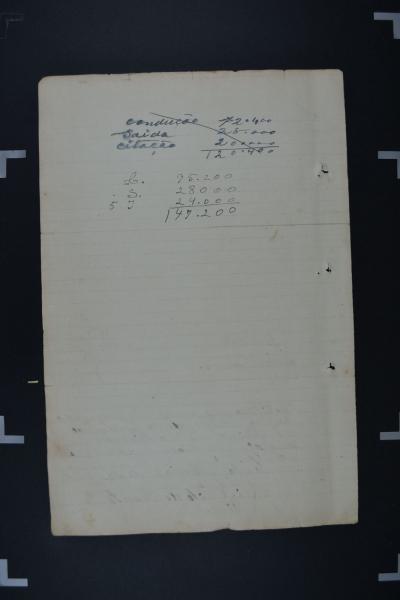 condução 72.400
Saida 25.000
Citação 20.000
120.400
L. 95.200
S. 28000
5 J 24.000
147.200